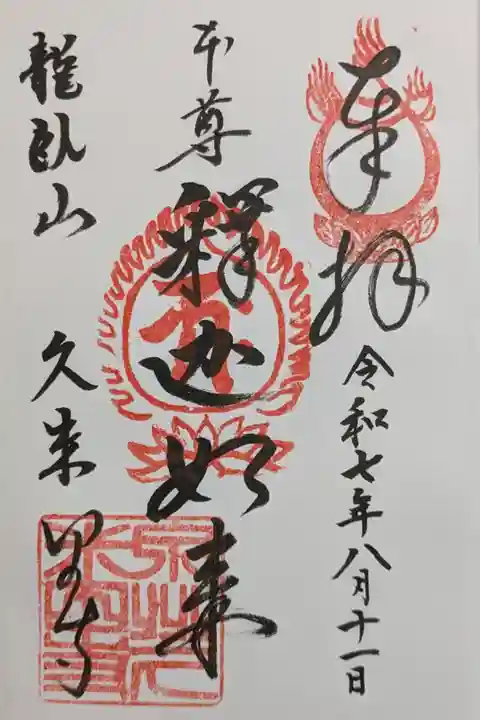 奉拝
令和七年八月十一日
本尊
釋迦如来
龍臥山
久米田寺